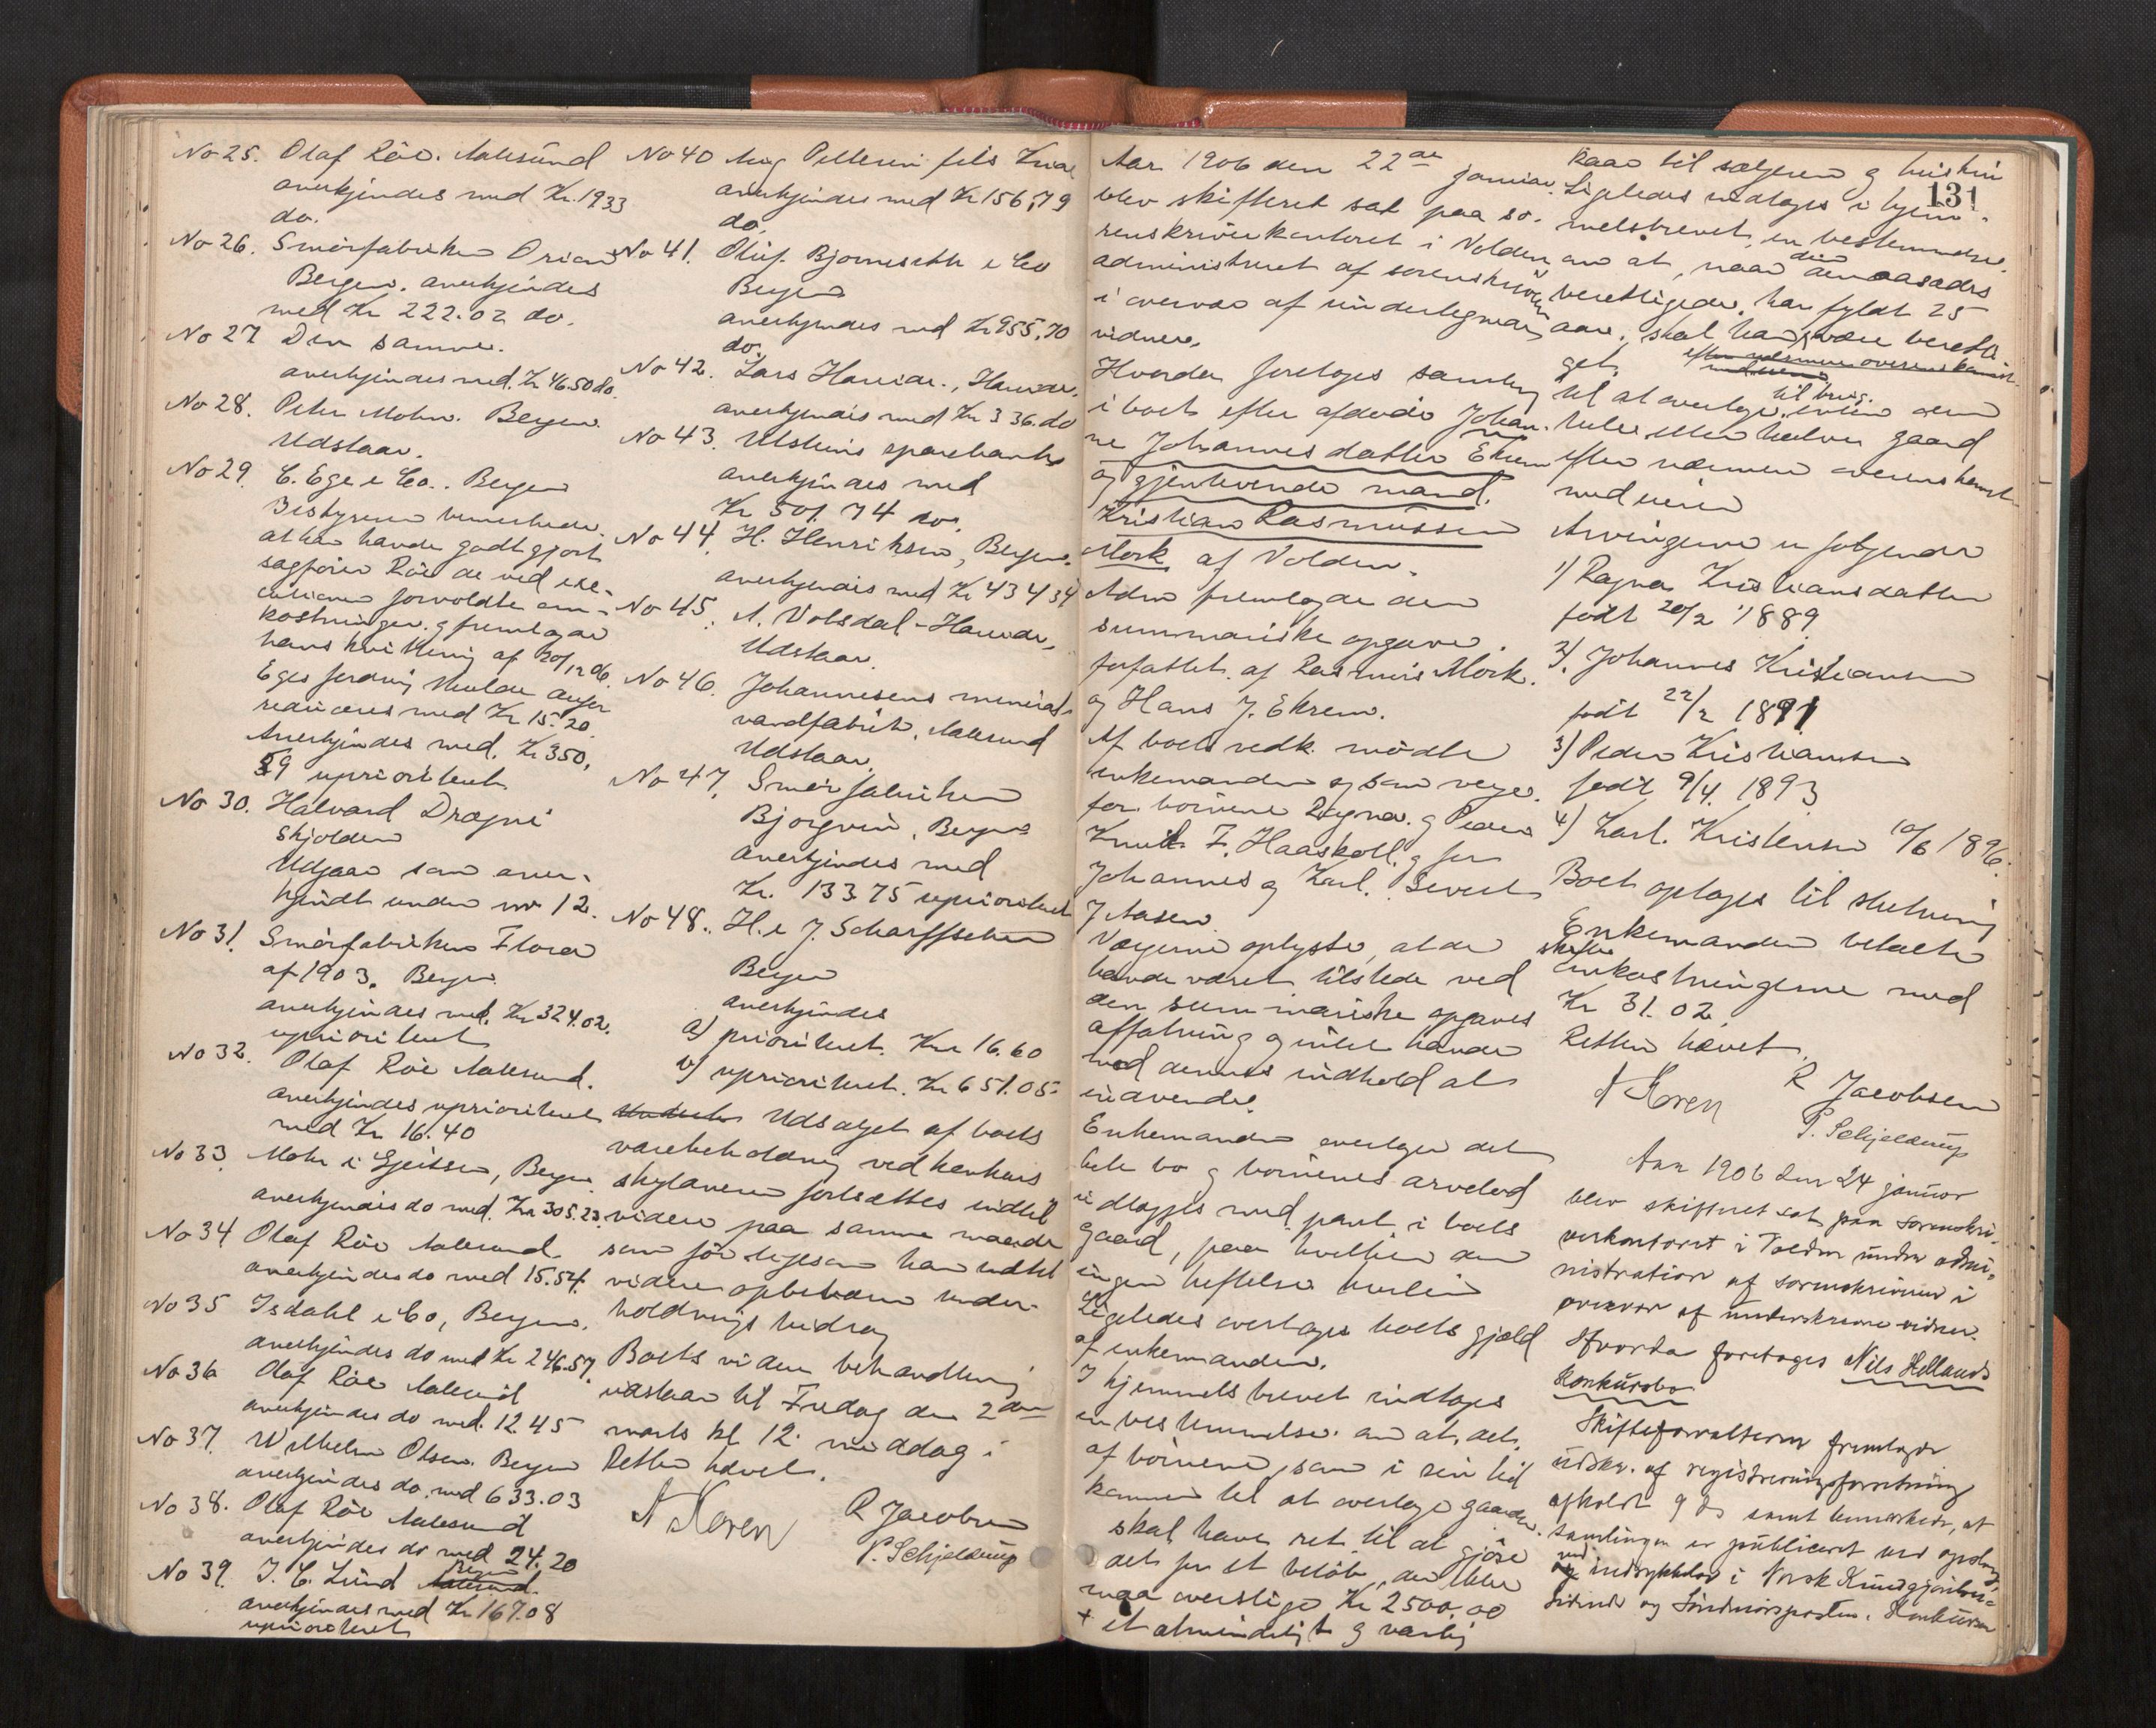 No 25. Olaf Röe. Aalesund
anerkjendes med Kr. 1933
do.
No 26. Smörfabriken Orion
Bergen. anerkjendes
med Kr 222.02 do.
No 27 Den samme.
anerkjendes med. Kr 46.50 do.
No 28. Peter Mohn. Bergen.
Udstaar.
No 29. C. Ege & Co.. Bergen
Bestyreren bemerkede
at han havde godtgjort
sagförer Röe de ved exe-
cutionen forvoldte om-
kostninger. g fremlagde
hans kvittering af 20/12 06.
Eges fordring skulde
reduceres med Kr 15.20.
Anerkjendes med. Kr 350,
59 uprioritert
No 30. Halvard Drægni
Skjolden
Udgaar som aner-
kjendt under no 12.
No 31. Smörfabriken Flora
af 1903. Bergen
anerkjendes med. Kr 324.02.
uprioritert
No 32. Olaf Röe Aalesund.
anerkjendes uprioritert
med Kr 16.40
No 33. Mohr & Gjeitsen, Bergen
anerkjendes do med. Kr 305.23.
No 34 Olaf Röe Aalesund.
anerkjendes do med 15.54.
No 35 Isdahl & Co, Bergen.
anerkjendes do med Kr 246.57.
No 36 Olaf Röe Aalesund
anerkjendes do med. 12.45
No 37. Wilhelm Olsen. Bergen
anerkjendes do. med 633.03
No 38. Olaf Röe Aalesund
anerkjendes do med 24.20
Bergen
No 39. J. C. Lund Aalesund.
anerkjendes med Kr 167.08
uprioritert
No 40 Aug Pellerin fils Kria
anerkjendes med Kr 156,79
do.
No 41. Oluf. Bjorneseth & Co
Bergen
anerkjendes med Kr 955,70
do.
No 42. Lars Hareide., Hareide.
anerkjendes med Kr 336. do
No 43. Ulsteins sparebank
anerkjendes med
Kr 501.74 do.
No 44. H. Henriksen, Bergen.
anerkjendes med Kr 434 34
No 45. A. Volsdal - Hareide,
Udstaar.
No 46. Johannesens mineral-
vandfabrik, Aalesund
Udstaar.
No 47. Smörfabriken
Bjorgvin, Bergen
anerkjendes med
Kr. 133.75 uprioritert
No 48.. H. & J. Scharffscher
Bergen
anerkjendes
a) prioritert. Kr 16.60
b) uprioritert. Kr 651.05.
Udsalget af boets
varebeholdning ved konkurs
skyldneren fortsættes indtil
videre paa samme maade
som för ligesom han indtil
videre oppebærer under-
holdningsbidrag
Boets videre behandling
udstaar til Fredag den 2den
marts kl 12. middag.
Retten hævet.
A Koren
R Jacobsen
P. Schjelderup
131
Aar 1906 den 22de januar
blev skifteret sat paa so-
renskriverkontoret i Volden
administreret af sorenskriveren
i overvær af undertegnede
vidner.
Hvorda foretoges samling
i boet efter afdöde Johan-
ne Johannesdatter Ekrem
og gjenlevende mand.
Kristian Rasmussen
Mork af Volden.
Adm fremlagde den
summariske opgave.
forfattet af Rasmus Mork.
og Hans J. Ekrem.
Af boets vedk. mödte
enkemanden og som verge.
for börnene Ragna. g Peder
Knut F. Haaskoll, g for
Johannes g Karl. Sivert
J Aasen.
Vergerne oplyste, at de
havde været tilstede ved
den summariske opgaves
affatning g intet havde
mod dennes indhold at
indvende.
Enkemanden overtager det
hele bo g börnenes arvelod
udlægges med pant i boets
gaard, paa hvilken der
ingen heftelser hviler
Ligeledes overtages boets gjæld
af enkemanden.
I hjemmelsbrevet indtages
en bestemmelse. om at, det
af börnene, som i sin tid
kommer til at overtage gaarden.
skal have ret til at gjöre
det for et belöb, der ikke
maa overstige Kr 2500.00
+ et almindeligt g varlig
kaar til sælgeren g hustru
Ligeledes indtages i hjem-
melsbrevet, en bestemmelse.
om at, naar den aasædes
berettigede. har fyldt 25
aar, skal han være beretti-
get,
efter nærmere overenskomst
til brug.
til at overtage enten den
hele eller halve gaard
efter nærmere overenskomst
med eieren
Arvingerne er fölgende
1) Ragna Kristiansdatter
födt 20/2 1889
2). Johannes Kristiansen
födt 22/2 1891
3) Peder Kristiansen
födt 9/4. 1893
4) Karl. Kristensen 10/6 1896.
Boet optages til slutning
Enkemanden betalte
skifte
omkostningerne med
Kr 31.02.
Retten hævet.
A Koren
R Jacobsen
P. Schjelderup
Aar 1906 den 24 januar
blev skifteret sat paa sorenskri-
verkontoret i Volden under admi-
nistration af sorenskriveren i
overvær af underskrevne vidner.
Hvorda foretoges Nils Hellands
Konkursbo
Skifteforvalteren fremlagde
udskr. af registreringsforretning
afholdt 9 ds samt bemærkede, at
samlingen er publiceret ved opslag
ved
og indrykkelse i Norsk Kundgjörelses-
tidende og Söndmörsposten. Konkursen